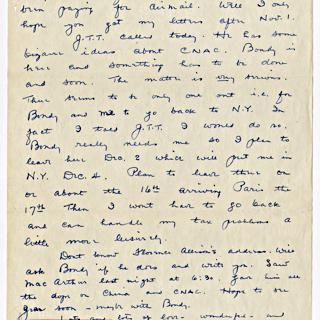 been paying for airmail. Well I only
hope you get my letters after Nov. 1.
J.T.T. called today. He has some
bizarre ideas about CNAC. Bondy is
here and something has to be done
and soon. The matter is very serious.
There seems to be only one out i.e. for
Bondy and me to go back to N.Y. In
fact I told J.T.T. I would do so.
Bondy really needs me so I plan to
leave here Dec. 2 which will put me in
N.Y. Dec. 4. Plan to leave there on
or about the 16th arriving Paris the
17th. Then I won't have to go back
and can handle my tax problems a
little more leisurely.
Dont know Allison's address. Will
ask Bondy if he does and write you. Saw
Mac Arthur last night at 6:30. Gave him all
the dope on China and CNAC. Hope to see
soon - maybe with Bondy.
lots and lots of love - and